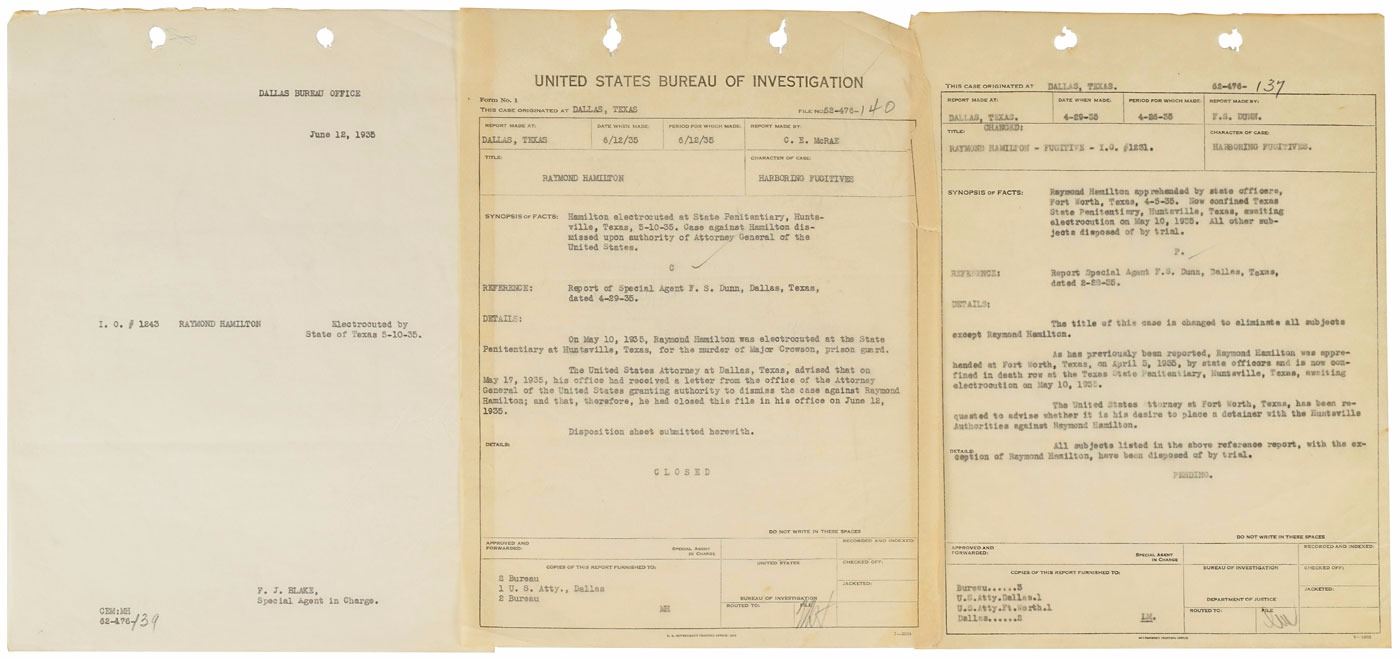 DALLAS BUREAU OFFICE
June 12, 1935
I. O. # 1243 RAYMOND HAMILTON Electrocuted by
State of Texas 5-10-35.
F. J. BLAKE,
Special Agent in Charge.
CEM:MH
62-476-139
UNITED STATES BUREAU OF INVESTIGATION
Form No. 1
THIS CASE ORIGINATED AT DALLAS, TEXAS FILE NO. 62-476-140
REPORT MADE AT: DATE WHEN MADE: PERIOD FOR WHICH MADE: REPORT MADE BY:
DALLAS, TEXAS 6/12/35 6/12/35 C. E. McRAE
TITLE: CHARACTER OF CASE:
RAYMOND HAMILTON HARBORING FUGITIVES
SYNOPSIS OF FACTS: Hamilton electrocuted at State Penitentiary, Hunts-
ville, Texas, 5-10-35. Case against Hamilton dis-
missed upon authority of Attorney General of the
United States.
C
REFERENCE: Report of Special Agent F. S. Dunn, Dallas, Texas,
dated 4-29-35.
DETAILS:
On May 10, 1935, Raymond Hamilton was electrocuted at the State
Penitentiary at Huntsville, Texas, for the murder of Major Crowson, prison guard.
The United States Attorney at Dallas, Texas, advised that on
May 17, 1935, his office had received a letter from the office of the Attorney
General of the United States granting authority to dismiss the case against Raymond
Hamilton; and that, therefore, he had closed this file in his office on June 12,
1935.
Disposition sheet submitted herewith.
DETAILS:
C L O S E D
DO NOT WRITE IN THESE SPACES
APPROVED AND
FORWARDED: SPECIAL AGENT
IN CHARGE RECORDED AND INDEXED:
COPIES OF THIS REPORT FURNISHED TO: UNITED STATES CHECKED OFF:
2 Bureau
1 U. S. Atty., Dallas JACKETED:
2 Bureau BUREAU OF INVESTIGATION
MH ROUTED TO: FILE
U. S. GOVERNMENT PRINTING OFFICE
THIS CASE ORIGINATED AT DALLAS, TEXAS. 62-476- 137
REPORT MADE AT: DATE WHEN MADE: PERIOD FOR WHICH MADE: REPORT MADE BY:
DALLAS, TEXAS. 4-29-35 4-26-35 F.S. DUNN.
TITLE: CHANGED: CHARACTER OF CASE:
RAYMOND HAMILTON - FUGITIVE - I.O. #1231. HARBORING FUGITIVES.
SYNOPSIS OF FACTS: Raymond Hamilton apprehended by state officers,
Fort Worth, Texas, 4-5-35. Now confined Texas
State Penitentiary, Huntsville, Texas, awaiting
electrocution on May 10, 1935. All other sub-
jects disposed of by trial.
P.
REFERENCE: Report Special Agent F.S. Dunn, Dallas, Texas,
dated 2-28-35.
DETAILS:
The title of this case is changed to eliminate all subjects
except Raymond Hamilton.
As has previously been reported, Raymond Hamilton was appre-
hended at Fort Worth, Texas, on April 5, 1935, by state officers and is now con-
fined in death row at the Texas State Penitentiary, Huntsville, Texas, awaiting
electrocution on May 10, 1935.
The United States Attorney at Fort Worth, Texas, has been re-
quested to advise whether it is his desire to place a detainer with the Huntsville
Authorities against Raymond Hamilton.
All subjects listed in the above reference report, with the ex-
DETAILS:
ception of Raymond Hamilton, have been disposed of by trial.
PENDING.
DO NOT WRITE IN THESE SPACES
APPROVED AND
FORWARDED: SPECIAL AGENT
IN CHARGE RECORDED AND INDEXED:
COPIES OF THIS REPORT FURNISHED TO: BUREAU OF INVESTIGATION CHECKED OFF:
Bureau......3
U.S.Atty.Dallas.1 JACKETED:
U.S.Atty.Ft.Worth.1 DEPARTMENT OF JUSTICE
Dallas......2 LM. ROUTED TO: FILE